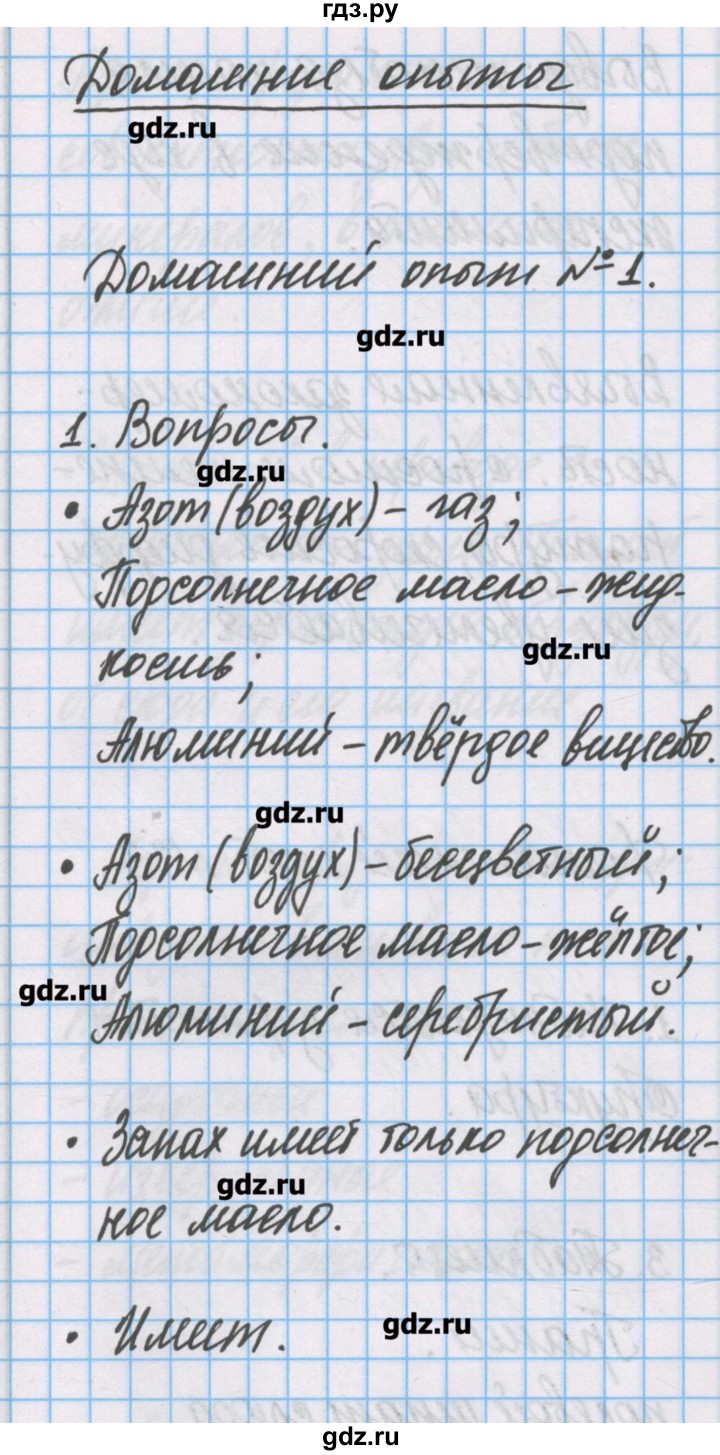 гдз.ру
Домашние опыты
gdz.ru
Домашний опыт №1.
gdz.ru
1. Вопросы.
gdz.ru
• Азот (воздух) – газ;
Подсолнечное масло – жид-
gdz.ru
кость;
Алюминий – твёрдое вищество.
gdz.ru
• Азот (воздух) – бесцветный;
Подсолнечное масло – жёлтое;
gdz.ru
Алюминий – серебристый.
• Запах имеет только подсолнеч-
gdz.ru
ное масло.
• Имеет.
gdz.ru
gdz.ru